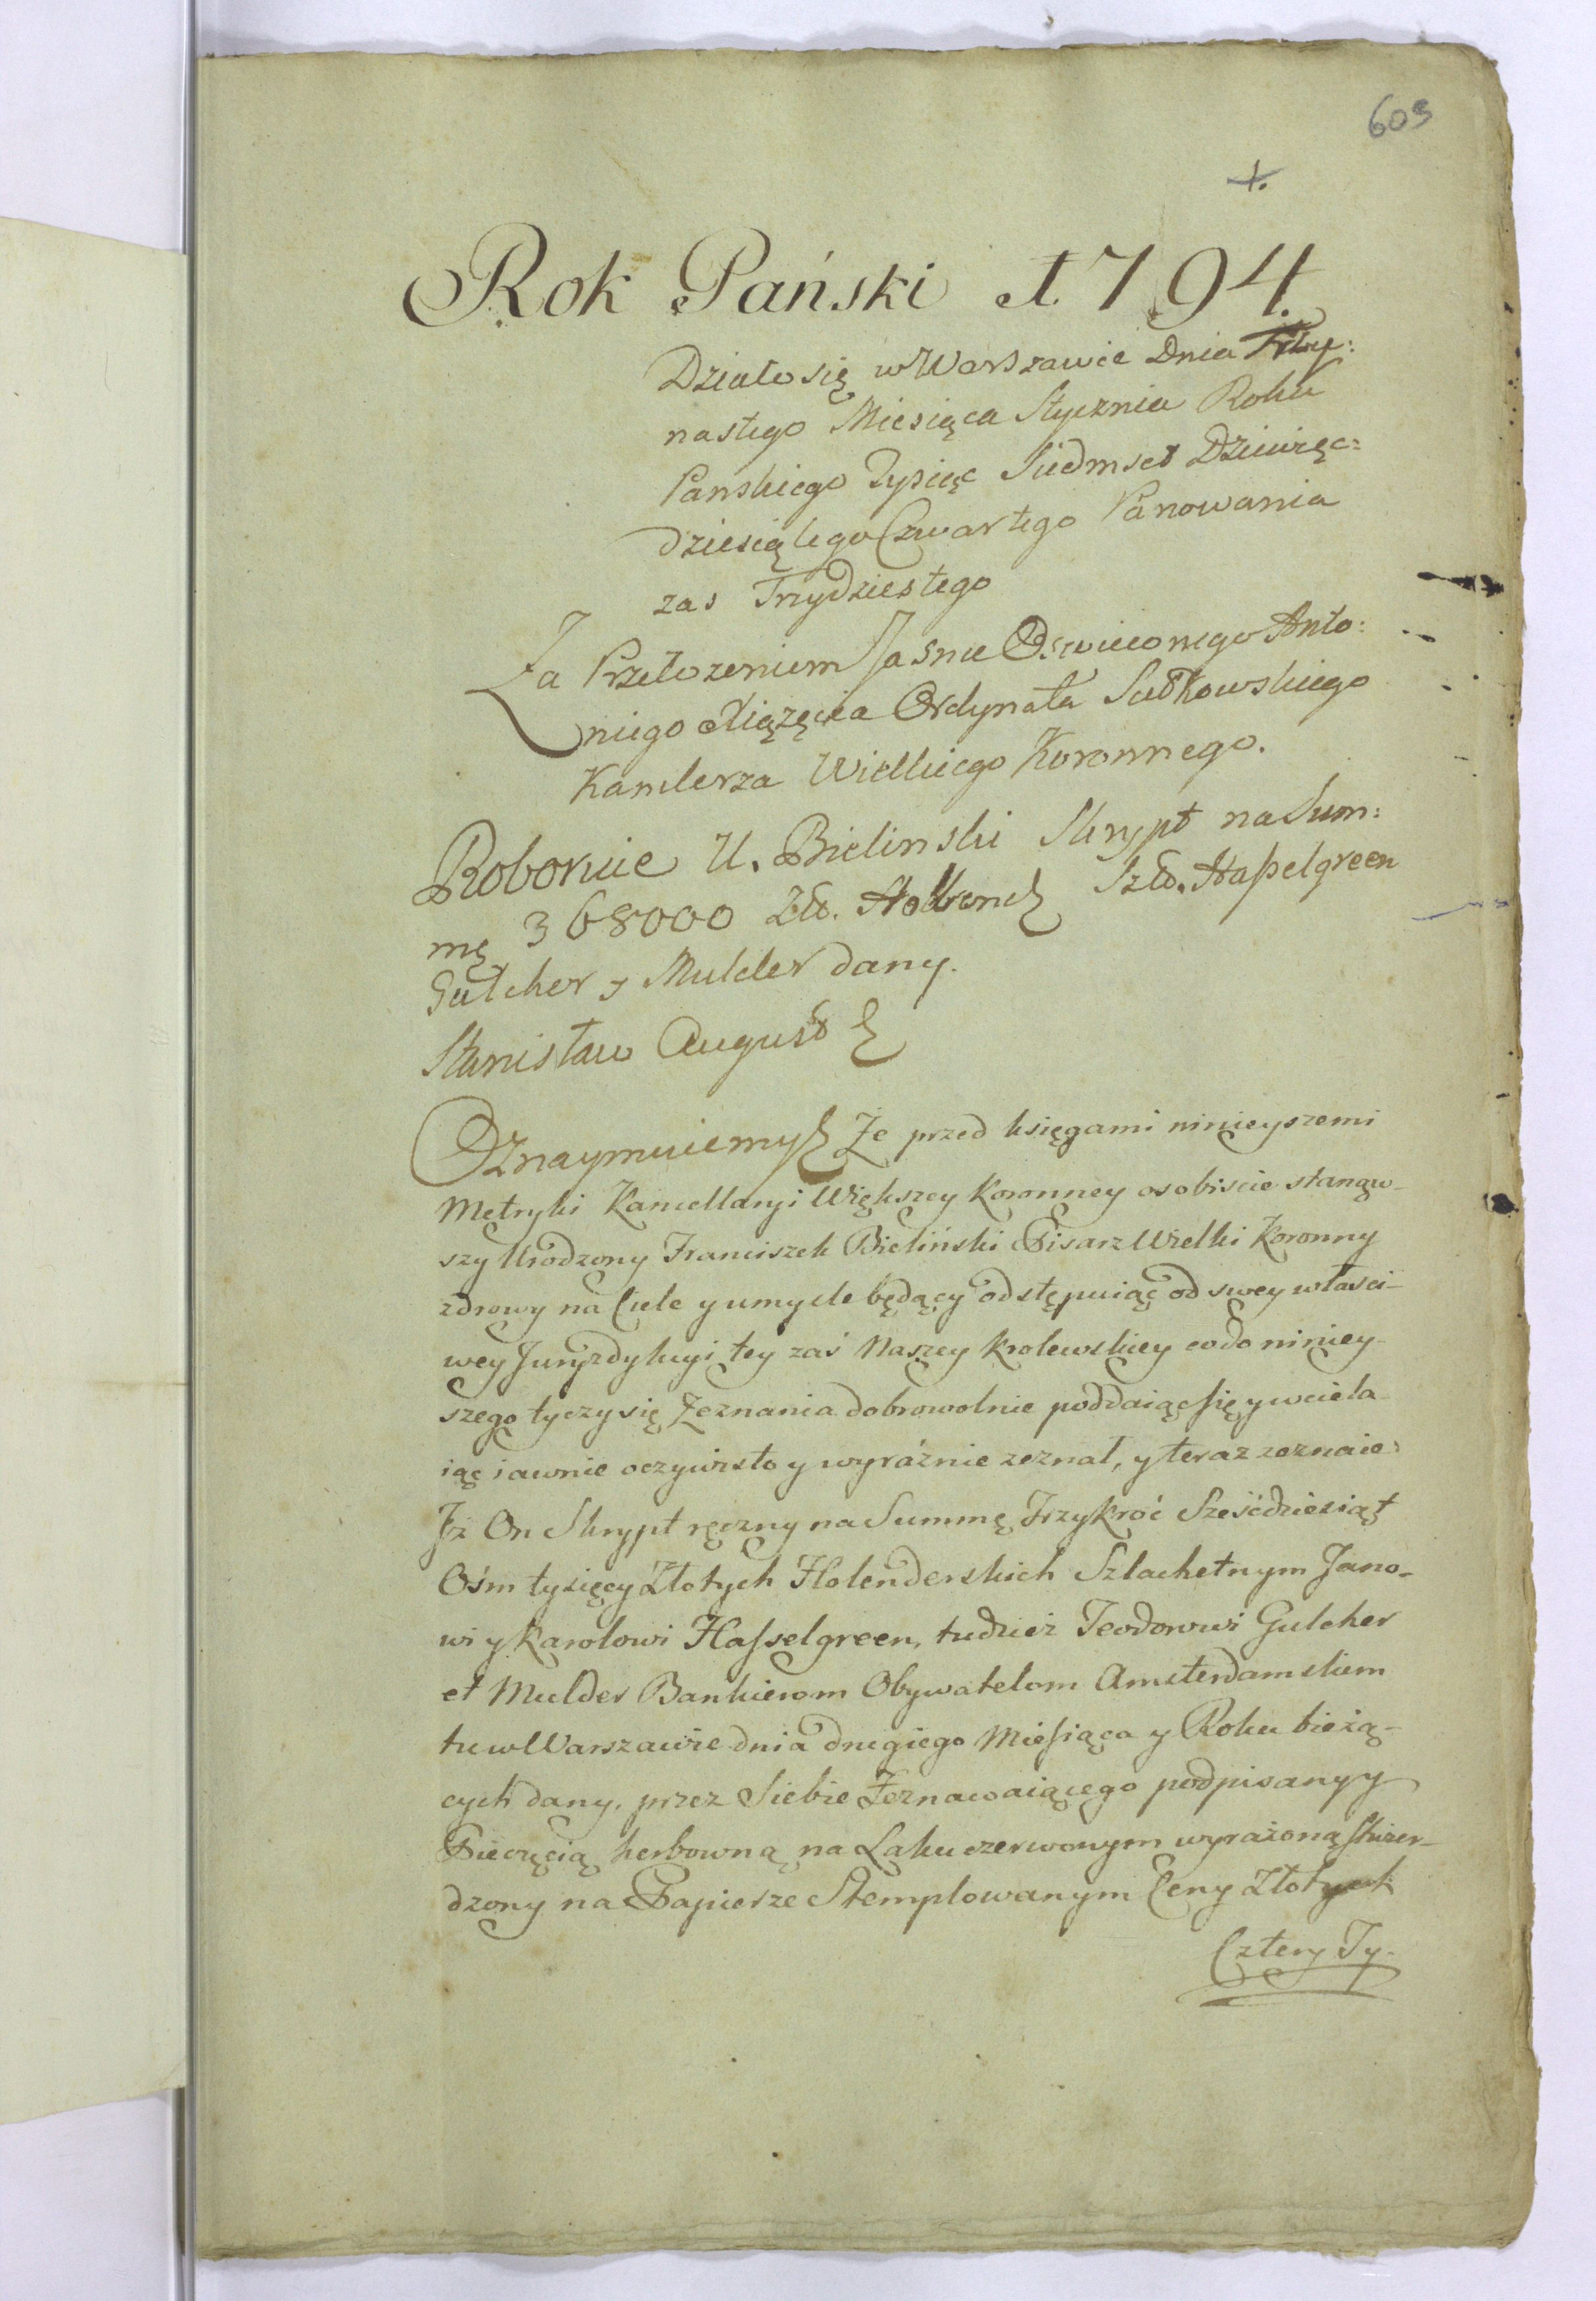 603
+.
Rok Pański 1794.
Działo się w Warszawie Dnia Trzy:
nastego Miesiąca Stycznia Roku
Panskiego Tysiąc Siedmset Dziewięc:
dziesiątego Czwartego Panowania
zas Trzydziestego
Za Przełozeniem Jasnie Oswieconego Anto:
niego Xiążęcia Ordynata Sułkowskiego
Kanclerza Wielkiego Koronnego.
Roboruie U. Bielinski Skrypt na Sum:
mę 368000 Zł. Hollend Szl. Haſselgreen
Gulcher y Mulder dany.
Stanisław August
Oznaymuiemy Że przed księgami ninieyszemi
Metryki Kancellaryi Większey Koronney osobiscie stanąw-
szy Urodzony Franciszek Bieliński Pisarz Wielki Koronny
zdrowy na Ciele y umysle będący odstępuiąc od swey własci-
wey Juryzdykcyi tey zaś Naszey Krolewskiey co do niniey-
szego tyczy się Zeznania dobrowolnie poddaiąc się y wciela-
iąc iawnie oczywisto y wyraźnie zeznał, y teraz zeznaie
Jż On Skrypt ręczny na Summę Trzykroć Sześćdziesiąt
Ośm tysięcy Złotych Holenderskich Szlachetnym Jano-
wi y Karolowi Haſselgreen, tudzież Teodorowi Gulcher
et Mulder Bankierom Obywatelom Amsterdamskiem
tu w Warszawie dnia drugiego Mieſiąca y Roku bieżą-
cych dany, przez Siebie Zeznawaiącego podpisany y
Pieczęcią herbowną na Laku czerwonym wyrażoną stwier-
dzony na Papierze Stemplowanym Ceny Złotych
Cztery Ty-